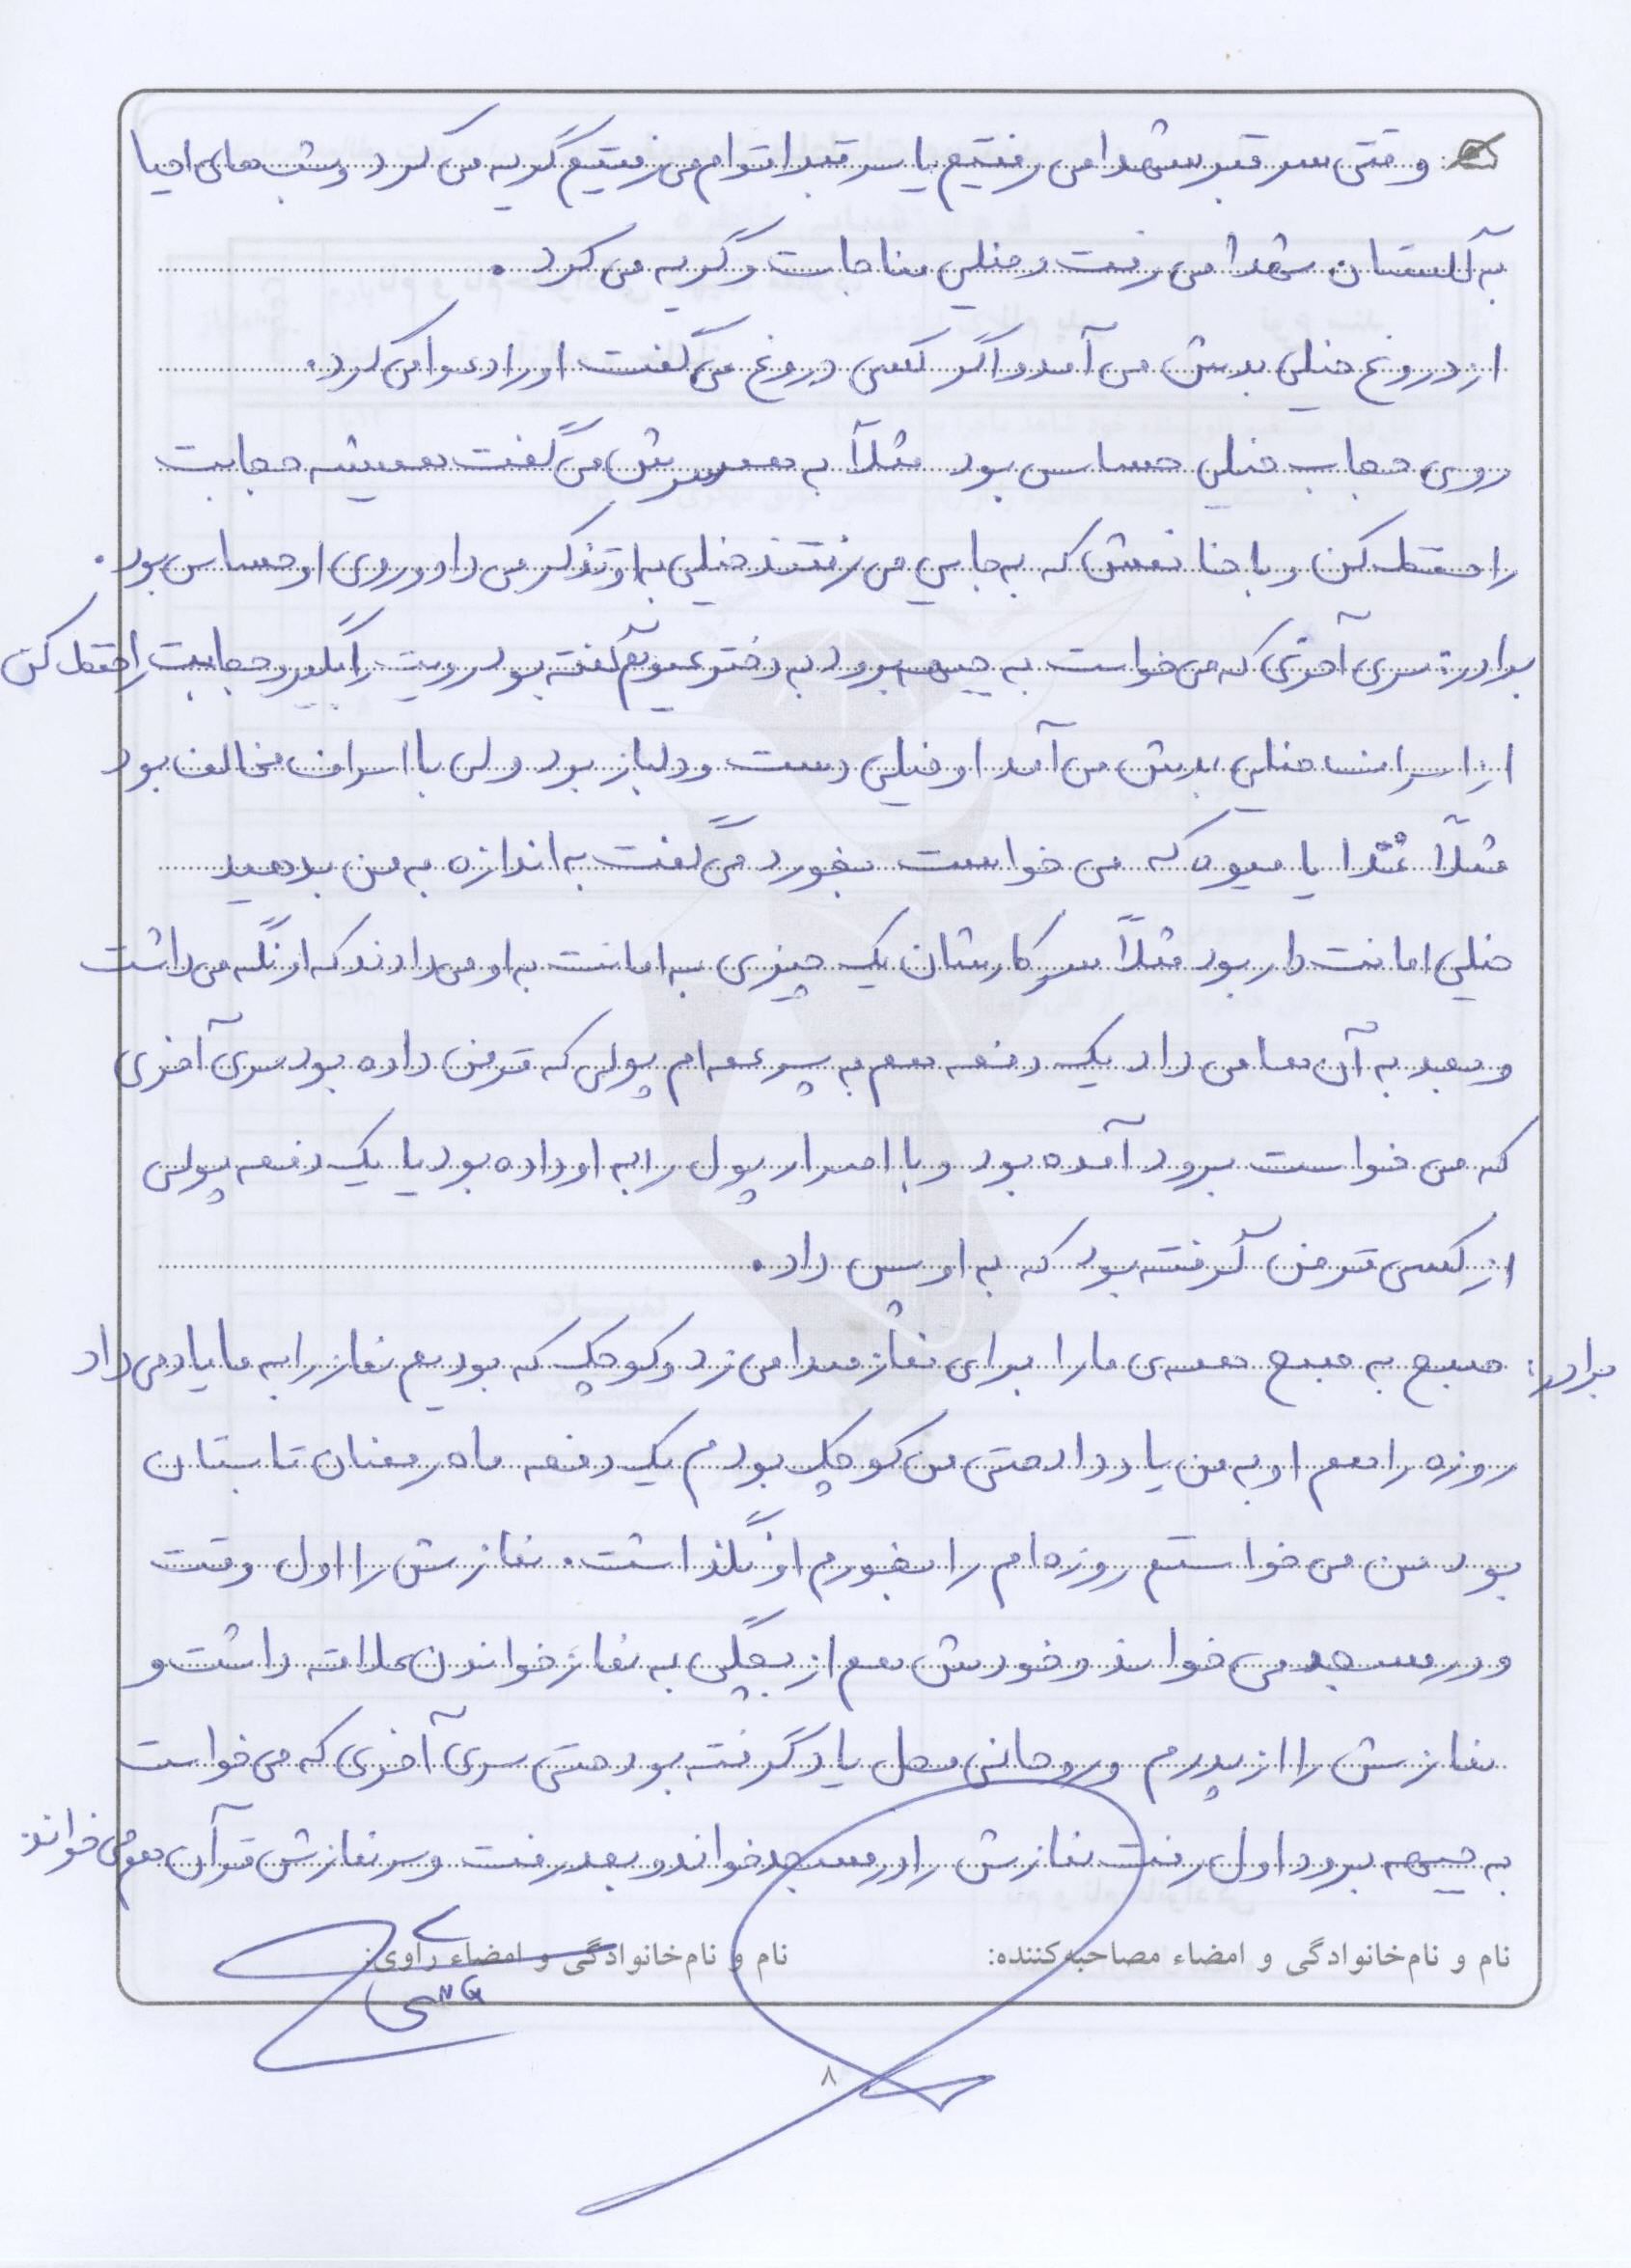 وقتی سر قبر شهدا می رفتیم یا سر قبر اقوام می رفتیم گریه می کرد و شب های احیا
به گلستان شهدا می رفت و خیلی مناجات و گریه می کرد .
از دروغ خیلی بدش می آمد و اگر کسی دروغ می گفت او را دعوا می کرد.
روی حجاب خیلی حساس بود مثلاً به همسرش می گفت همیشه حجابت
را حفظ کن و با خانمش که به جایی می رفتند خیلی به او تذکر می داد و روی او حساس بود .
برادر: سری آخری که می خواست به جبهه برود به دختر عمویم گفته بود رویت را بگیر و حجابت را حفظ کن
از اسراف خیلی بدش می آمد او خیلی دست و دلباز بود ولی با اسراف مخالف بود
مثلاً غذا یا میوه که می خواست بخورد می گفت به اندازه به من بدهید
خیلی امانت دار بود مثلاً سر کارشان یک چیزی به امانت به او می دادند که او نگه می داشت
و بعد به آن ها می داد یک دفعه هم به پسر عمه ام پولی که قرض داده بود سری آخری
که می خواست برود آمده بود و با اصرار پول را به او داده بود یا یک دفعه پولی
از کسی قرض گرفته بود که به او پس داد .
برادر: صبح به صبح همه ی ما را برای نماز صدا می زد و کوچک که بودیم نماز را به ما یاد می داد
روزه را هم او به من یاد داد حتی من کوچک بودم یک دفعه ماه رمضان تابستان
بود من می خواستم روزه ام را بخورم او نگذاشت . نمازش را اول وقت
و در مسجد می خواند و خودش هم از بچگی به نماز خواندن علاقه داشت و
نمازش را از پدرم و روحانی محل یاد گرفته بود حتی سری آخری که می خواست
به جبهه برود اول رفت نمازش را در مسجد خواند و بعد رفت و سر نمازش قرآن هم می خواند
نام و نام خانوادگی و امضاء مصاحبه کننده: نام و نام خانوادگی و امضاء راوی:
۸